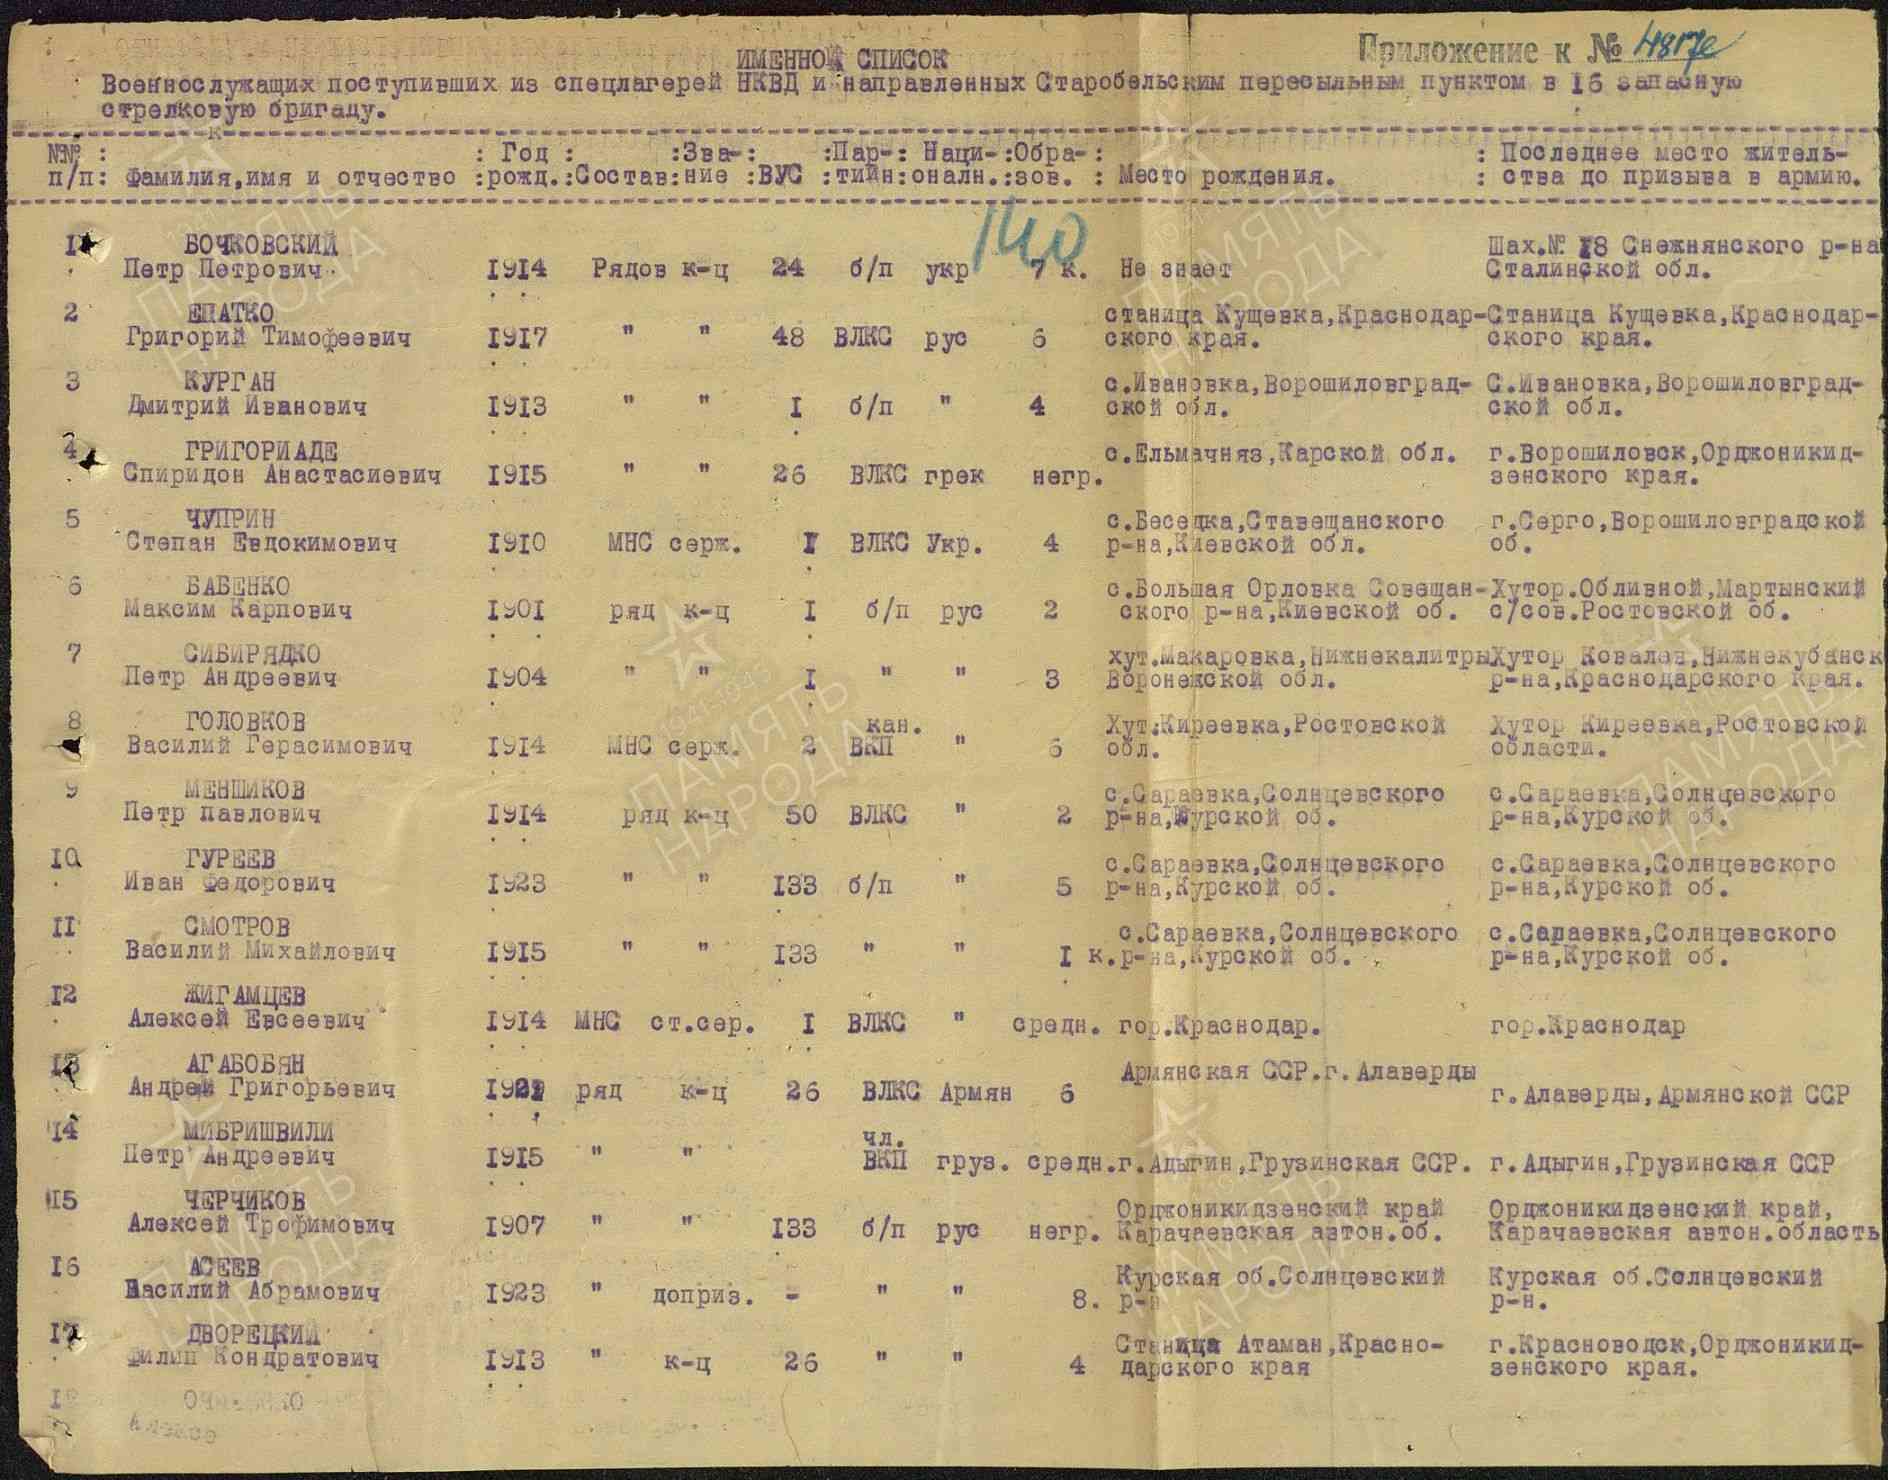 Приложение к № 4817с
ИМЕННОЙ СПИСОК
Военнослужащих поступивших из спецлагерей НКВД и направленных Старобельским пересыльным пунктом в 16 запасную
стрелковую бригаду.
№№ : : Год : :Зва-: :Пар-: Наци-:Обра-: : Последнее место житель-
п/п: Фамилия,имя и отчество :рожд.:Состав:ние :ВУС :тийн:оналн.:зов. : Место рождения. : ства до призыва в армию.
140
1 БОЧКОВСКИЙ Шах.№ 18 Снежнянского р-на
Петр Петрович 1914 Рядов к-ц 24 б/п укр 7 к. Не знает Сталинской обл.
2 ЕПАТКО станица Кущевка,Краснодар- Станица Кущевка,Краснодар-
Григорий Тимофеевич 1917 " " 48 ВЛКС рус 6 ского края. ского края.
3 КУРГАН с.Ивановка,Ворошиловград- С.Ивановка,Ворошиловград-
Дмитрий Иванович 1913 " " I б/п " 4 ской обл. ской обл.
4 ГРИГОРИАДЕ с.Ельмачняз,Карской обл. г.Ворошиловск,Орджоникид-
Спиридон Анастасиевич 1915 " " 26 ВЛКС грек негр. зенского края.
5 ЧУПРИН с.Беседка,Ставещанского г.Серго,Ворошиловградской
Степан Евдокимович 1910 МНС серж. I ВЛКС Укр. 4 р-на,Киевской обл. об.
6 БАБЕНКО с.Большая Орловка Совещан- Хутор.Обливной,Мартынский
Максим Карпович 1901 ряд к-ц I б/п рус 2 ского р-на,Киевской об. с/сов.Ростовской об.
7 СИБИРЯДКО хут.Макаровка,Нижнекалитры Хутор Ковалев,Нижнекубанск
Петр Андреевич 1904 " " I " " 3 Воронежской обл. р-на,Краснодарского края.
8 ГОЛОВКОВ кан. Хут.Киреевка,Ростовской Хутор Киреевка,Ростовской
Василий Герасимович 1914 МНС серж. 2 ВКП " 6 обл. области.
9 МЕНШИКОВ с.Сараевка,Солнцевского с.Сараевка,Солнцевского
Петр павлович 1914 ряд к-ц 50 ВЛКС " 2 р-на,Курской об. р-на,Курской об.
10 ГУРЕЕВ с.Сараевка,Солнцевского с.Сараевка,Солнцевского
Иван Федорович 1923 " " 133 б/п " 5 р-на,Курской об. р-на,Курской об.
11 СМОТРОВ с.Сараевка,Солнцевского с.Сараевка,Солнцевского
Василий Михайлович 1915 " " 133 " " 1 к. р-на,Курской об. р-на,Курской об.
12 ЖИГАМЦЕВ
Алексей Евсеевич 1914 МНС ст.сер. I ВЛКС " средн. гор.Краснодар. гор.Краснодар
13 АГАБОБЯН Армянская ССР.г.Алаверды
Андрей Григорьевич ряд к-ц 26 ВЛКС Армян 6 г.Алаверды,Армянской ССР
14 МИБРИШВИЛИ чл.
Петр Андреевич 1915 " " ВКП груз. средн. г.Адыгин,Грузинская ССР. г.Адыгин,Грузинская ССР
15 ЧЕРЧИКОВ Орджоникидзенский край Орджоникидзенский край,
Алексей Трофимович 1907 " " 133 б/п рус негр. Карачаевская автон.об. Карачаевская автон.область
16 АСЕЕВ Курская об.Солнцевский Курская об.Солнцевский
Василий Абрамович 1923 " доприз. - " " 8. р-н р-н.
17 ДВОРЕЦКИЙ Станица Атаман,Красно- г.Красноводск,Орджоникид-
Филип Кондратович 1913 " к-ц 26 " " 4 дарского края зенского края.
ПАМЯТЬ
НАРОДА